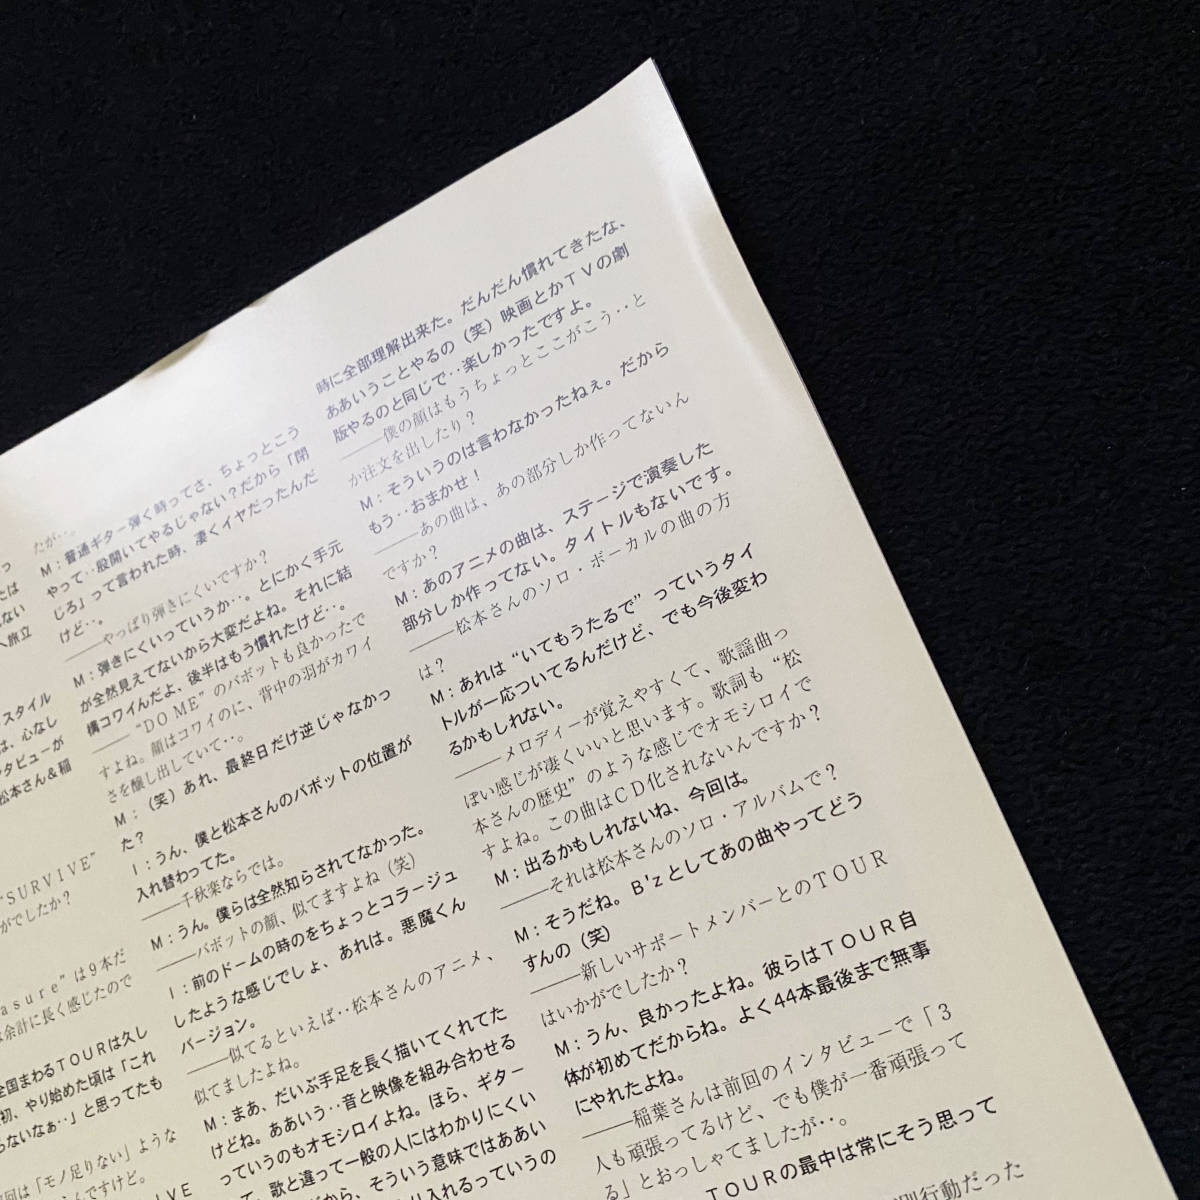 っ
たは
ない
へ旅立
スタイル
は、心なし
タビューが
松本さん&稲
“SURVIVE”
がでしたか?
asure”は9本だ
余計に長く感じたので
全国まわるTOURは久し
初、やり始めた頃は「これ
らないなぁ‥」と思ってたも
回は「モノ足りない」ような
んですけど。
IVE
たが‥。
M:普通ギター弾く時ってさ、ちょっとこう
やって‥股開いてやるじゃない?だから「閉
じろ」って言われた時、凄くイヤだったんだ
けど‥。
――やっぱり弾きにくいですか?
M:弾きにくいっていうか‥。とにかく手元
が全然見えてないから大変だよね。それに結
構コワイんだよ、後半はもう慣れたけど‥。
――“DO ME”のバボットも良かったで
すよね。顔はコワイのに、背中の羽がカワイ
さを醸し出していて‥。
M:(笑)あれ、最終日だけ逆じゃなかっ
た?
I:うん、僕と松本さんのバボットの位置が
入れ替わってた。
――千秋楽ならでは。
M:うん。僕らは全然知らされてなかった。
――バボットの顔、似てますよね(笑)
I:前のドームの時のをちょっとコラージュ
したような感じでしょ、あれは。悪魔くん
バージョン。
――似てるといえば‥松本さんのアニメ、
似てましたよね。
M:まあ、だいぶ手足を長く描いてくれてた
けどね。ああいう‥音と映像を組み合わせる
っていうのもオモシロイよね。ほら、ギター
て、歌と違って一般の人にはわかりにくい
だから、そういう意味ではああい
り入れるっていうの
時に全部理解出来た。だんだん慣れてきたな、
ああいうことやるの(笑)映画とかTVの劇
版やるのと同じで‥楽しかったですよ。
――僕の顔はもうちょっとここがこう‥と
か注文を出したり?
M:そういうのは言わなかったねぇ。だから
もう‥おまかせ!
――あの曲は、あの部分しか作ってないん
ですか?
M:あのアニメの曲は、ステージで演奏した
部分しか作ってない。タイトルもないです。
――松本さんのソロ・ボーカルの曲の方
は?
M:あれは“いてもうたるで”っていうタイ
トルが一応ついてるんだけど、でも今後変わ
るかもしれない。
――メロディーが覚えやすくて、歌謡曲っ
ぽい感じが凄くいいと思います。歌詞も“松
本さんの歴史”のような感じでオモシロイで
すよね。この曲はCD化されないんですか?
M:出るかもしれないね、今回は。
――それは松本さんのソロ・アルバムで?
M:そうだね。B'zとしてあの曲やってどう
すんの(笑)
――新しいサポートメンバーとのTOUR
はいかがでしたか?
M:うん、良かったよね。彼らはTOUR自
体が初めてだからね。よく44本最後まで無事
にやれたよね。
――稲葉さんは前回のインタビューで「3
人も頑張ってるけど、でも僕が一番頑張って
る」とおっしゃてましたが‥。
TOURの最中は常にそう思って
別行動だった